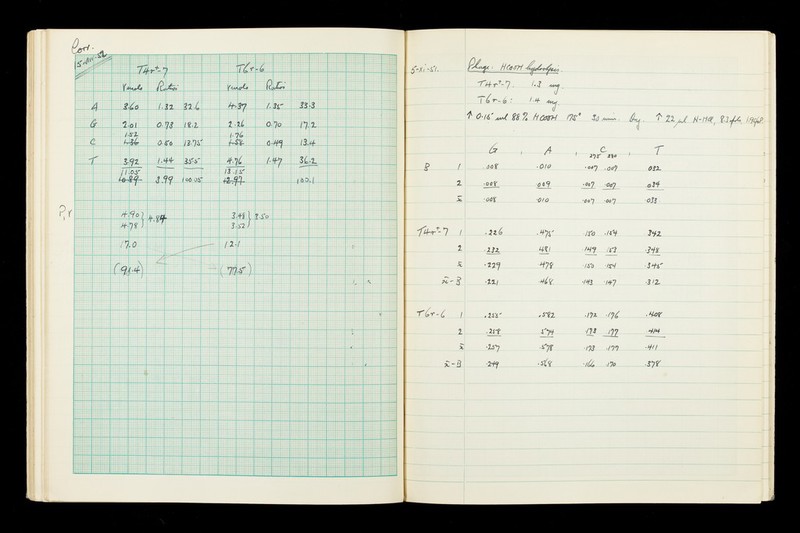 Corr.
T4r⁺-7 T6r-6
μmols Ratio μmols Ratio
A 3.60 1.32 32.6 4.37 1.35 33.3
G 2.01 0.73 18.2 2.26 0.70 17.2
1.52 1.76
C 0.50 13.75 0.49 13.4
T 3.92 1.44 35.5 4.76 1.47 36.2
11.05 3.99 100.05 13.15 100.1
4.90 3.48 3.50
4.78 3.52
17.0 12.1
(91.4) (77.5)
Phage: HCOOH hydrolysis.
T4r⁺-7. 1.3 mg.
T6r-6: 1.4 mg.
↑ 0.15 ml 88% HCOOH 175° 30 min. Dry. ↑ 22 μl N-HCl,
G A C T
275 280
B 1 .008 .010 .007 .007 .032
2 .008 .009 .007 .007 .034
x̄ .008 .010 .007 .007 .033
T4r⁺-7 1 .226 .475 .150 .154 .342
2 .232 .481 .149 .153 .348
x̄ .229 .478 .150 .154 .345
x̄-B .221 .468 .143 .147 .312
T6r-6 1 .255 .582 .172 .176 .408
2 .258 .574 .173 .177 .414
x̄ .257 .578 .173 .177 .411
x̄-B .249 .568 .166 .170 .378